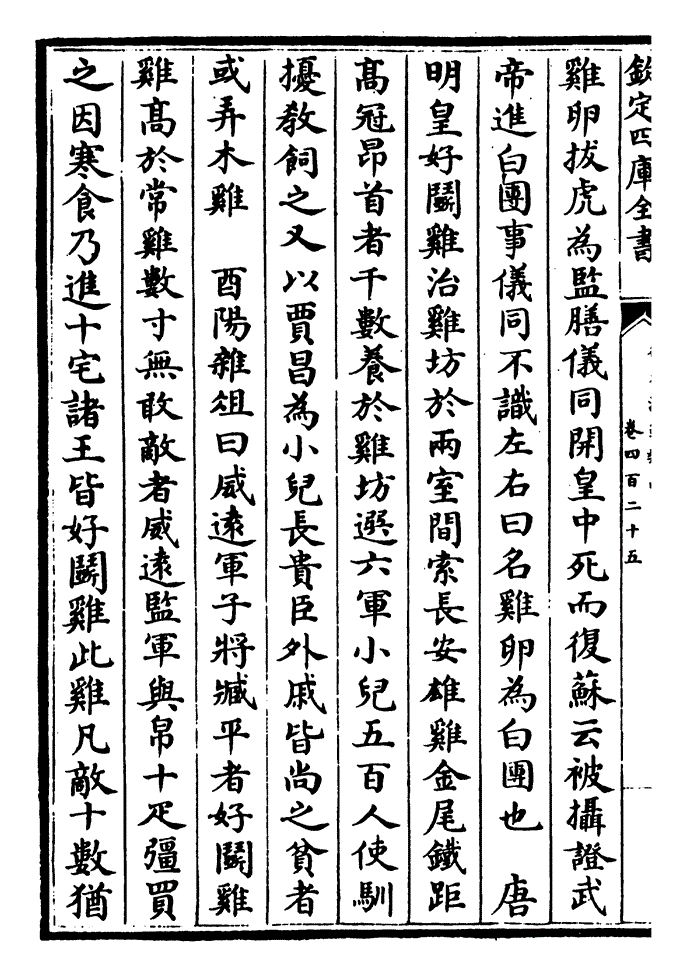 欽定四庫全書
卷四百二十五
雞卵拔虎為監膳儀同開皇中死而復蘇云被攝證武
帝進白團事儀同不識左右曰名雞卵為白團也　唐
明皇好鬬雞治雞坊於兩宮間索長安雄雞金尾鐵距
高冠昂首者千數養於雞坊選六軍小兒五百人使馴
擾教飼之又以賈昌為小兒長貴臣外戚皆尚之貧者
或弄木雞　酉陽雜俎曰威遠軍子將臧平者好鬬雞
雞高於常雞數寸無敢敵者威遠監軍與帛十疋彊買
之因寒食乃進十宅諸王皆好鬬雞此雞凡敵十數猶